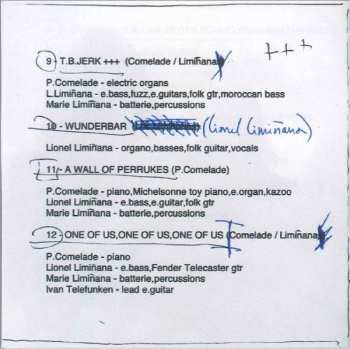 +++
9 - T.B.JERK +++ (Comelade / Limiñana)
P.Comelade - electric organs
L.Limiñana - e.bass,fuzz,e.guitars,folk gtr,moroccan bass
Marie Limiñana - batterie,percussions
10 - WUNDERBAR (Lionel Limiñana)
Lionel Limiñana - organo,basses,folk guitar,vocals
11 - A WALL OF PERRUKES (P.Comelade)
P.Comelade - piano,Michelsonne toy piano,e.organ,kazoo
Lionel Limiñana - e.bass,e.guitar,folk gtr
Marie Limiñana - batterie,percussions
12 - ONE OF US,ONE OF US,ONE OF US (Comelade / Limiñana)
P.Comelade - piano
Lionel Limiñana - e.bass,Fender Telecaster gtr
Marie Limiñana - batterie,percussions
Ivan Telefunken - lead e.guitar